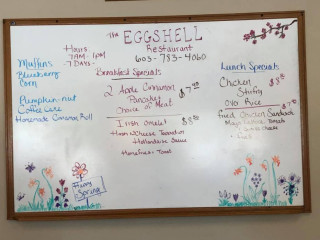 The EGGSHELL
Restaurant
603-783-4060
Hours
7AM-1PM
-7 DAYS-
Muffins
Blueberry
Corn
Pumpkin-nut
Coffee Cake
Homemade Cinnamon Roll
Breakfast Specials
2 Apple Cinnamon $7
Pancakes
Choice of Meat
1 Irish Omelet $8
Hash & Cheese
Hollandaise Sauce
Homefries Toast
Lunch Specials
Chicken $8
Stirfry
O/O Rice
Fried Chicken Sandwich $7
Happy
Spring